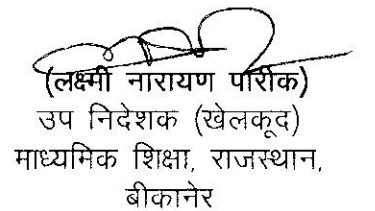 (लक्ष्मी नारायण पारीक)
उप निदेशक (खेलकूद)
माध्यमिक शिक्षा, राजस्थान,
बीकानेर